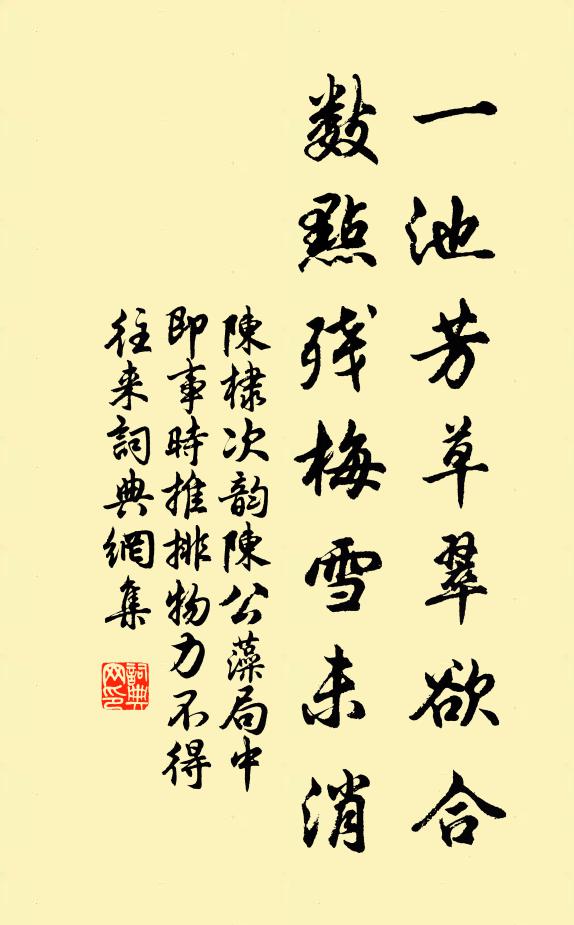 一池芳草翠欲合
数點残梅雪未消
陳棣次韵陳公藻局中
即事時推排物力不得
往来詞典網集
詞典网印